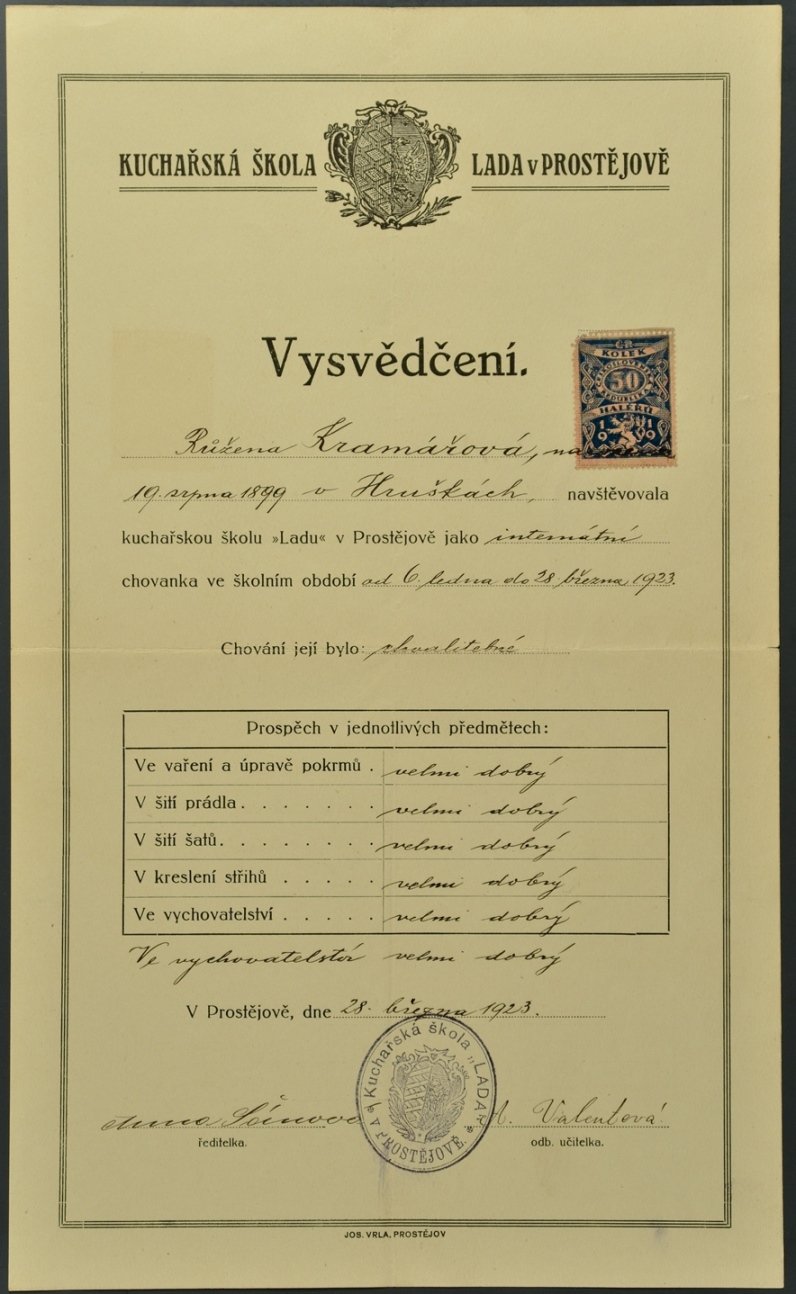 KUCHAŘSKÁ ŠKOLA LADA v PROSTĚJOVĚ
Vysvědčení.
ČR
KOLEK
ČESKOSLOVENSKÁ
50
REPUBLIKA
HALÉŘŮ
1919
Růžena Kramářová,
19. srpna 1899 v Hruškách, navštěvovala
kuchařskou školu »Ladu« v Prostějově jako internátní
chovanka ve školním období od 6. ledna do 28. března 1923.
Chování její bylo: chvalitebné
Prospěch v jednotlivých předmětech:
Ve vaření a úpravě pokrmů . velmi dobrý
V šití prádla . . . . . . . velmi dobrý
V šití šatů . . . . . . . . velmi dobrý
V kreslení střihů . . . . . velmi dobrý
Ve vychovatelství . . . . . velmi dobrý
Ve vychovatelství velmi dobrý
V Prostějově, dne 28. března 1923.
Kuchařská škola „LADA" v PROSTĚJOVĚ.
Anna
Valentová
ředitelka.
odb. učitelka.
JOS. VRLA, PROSTĚJOV